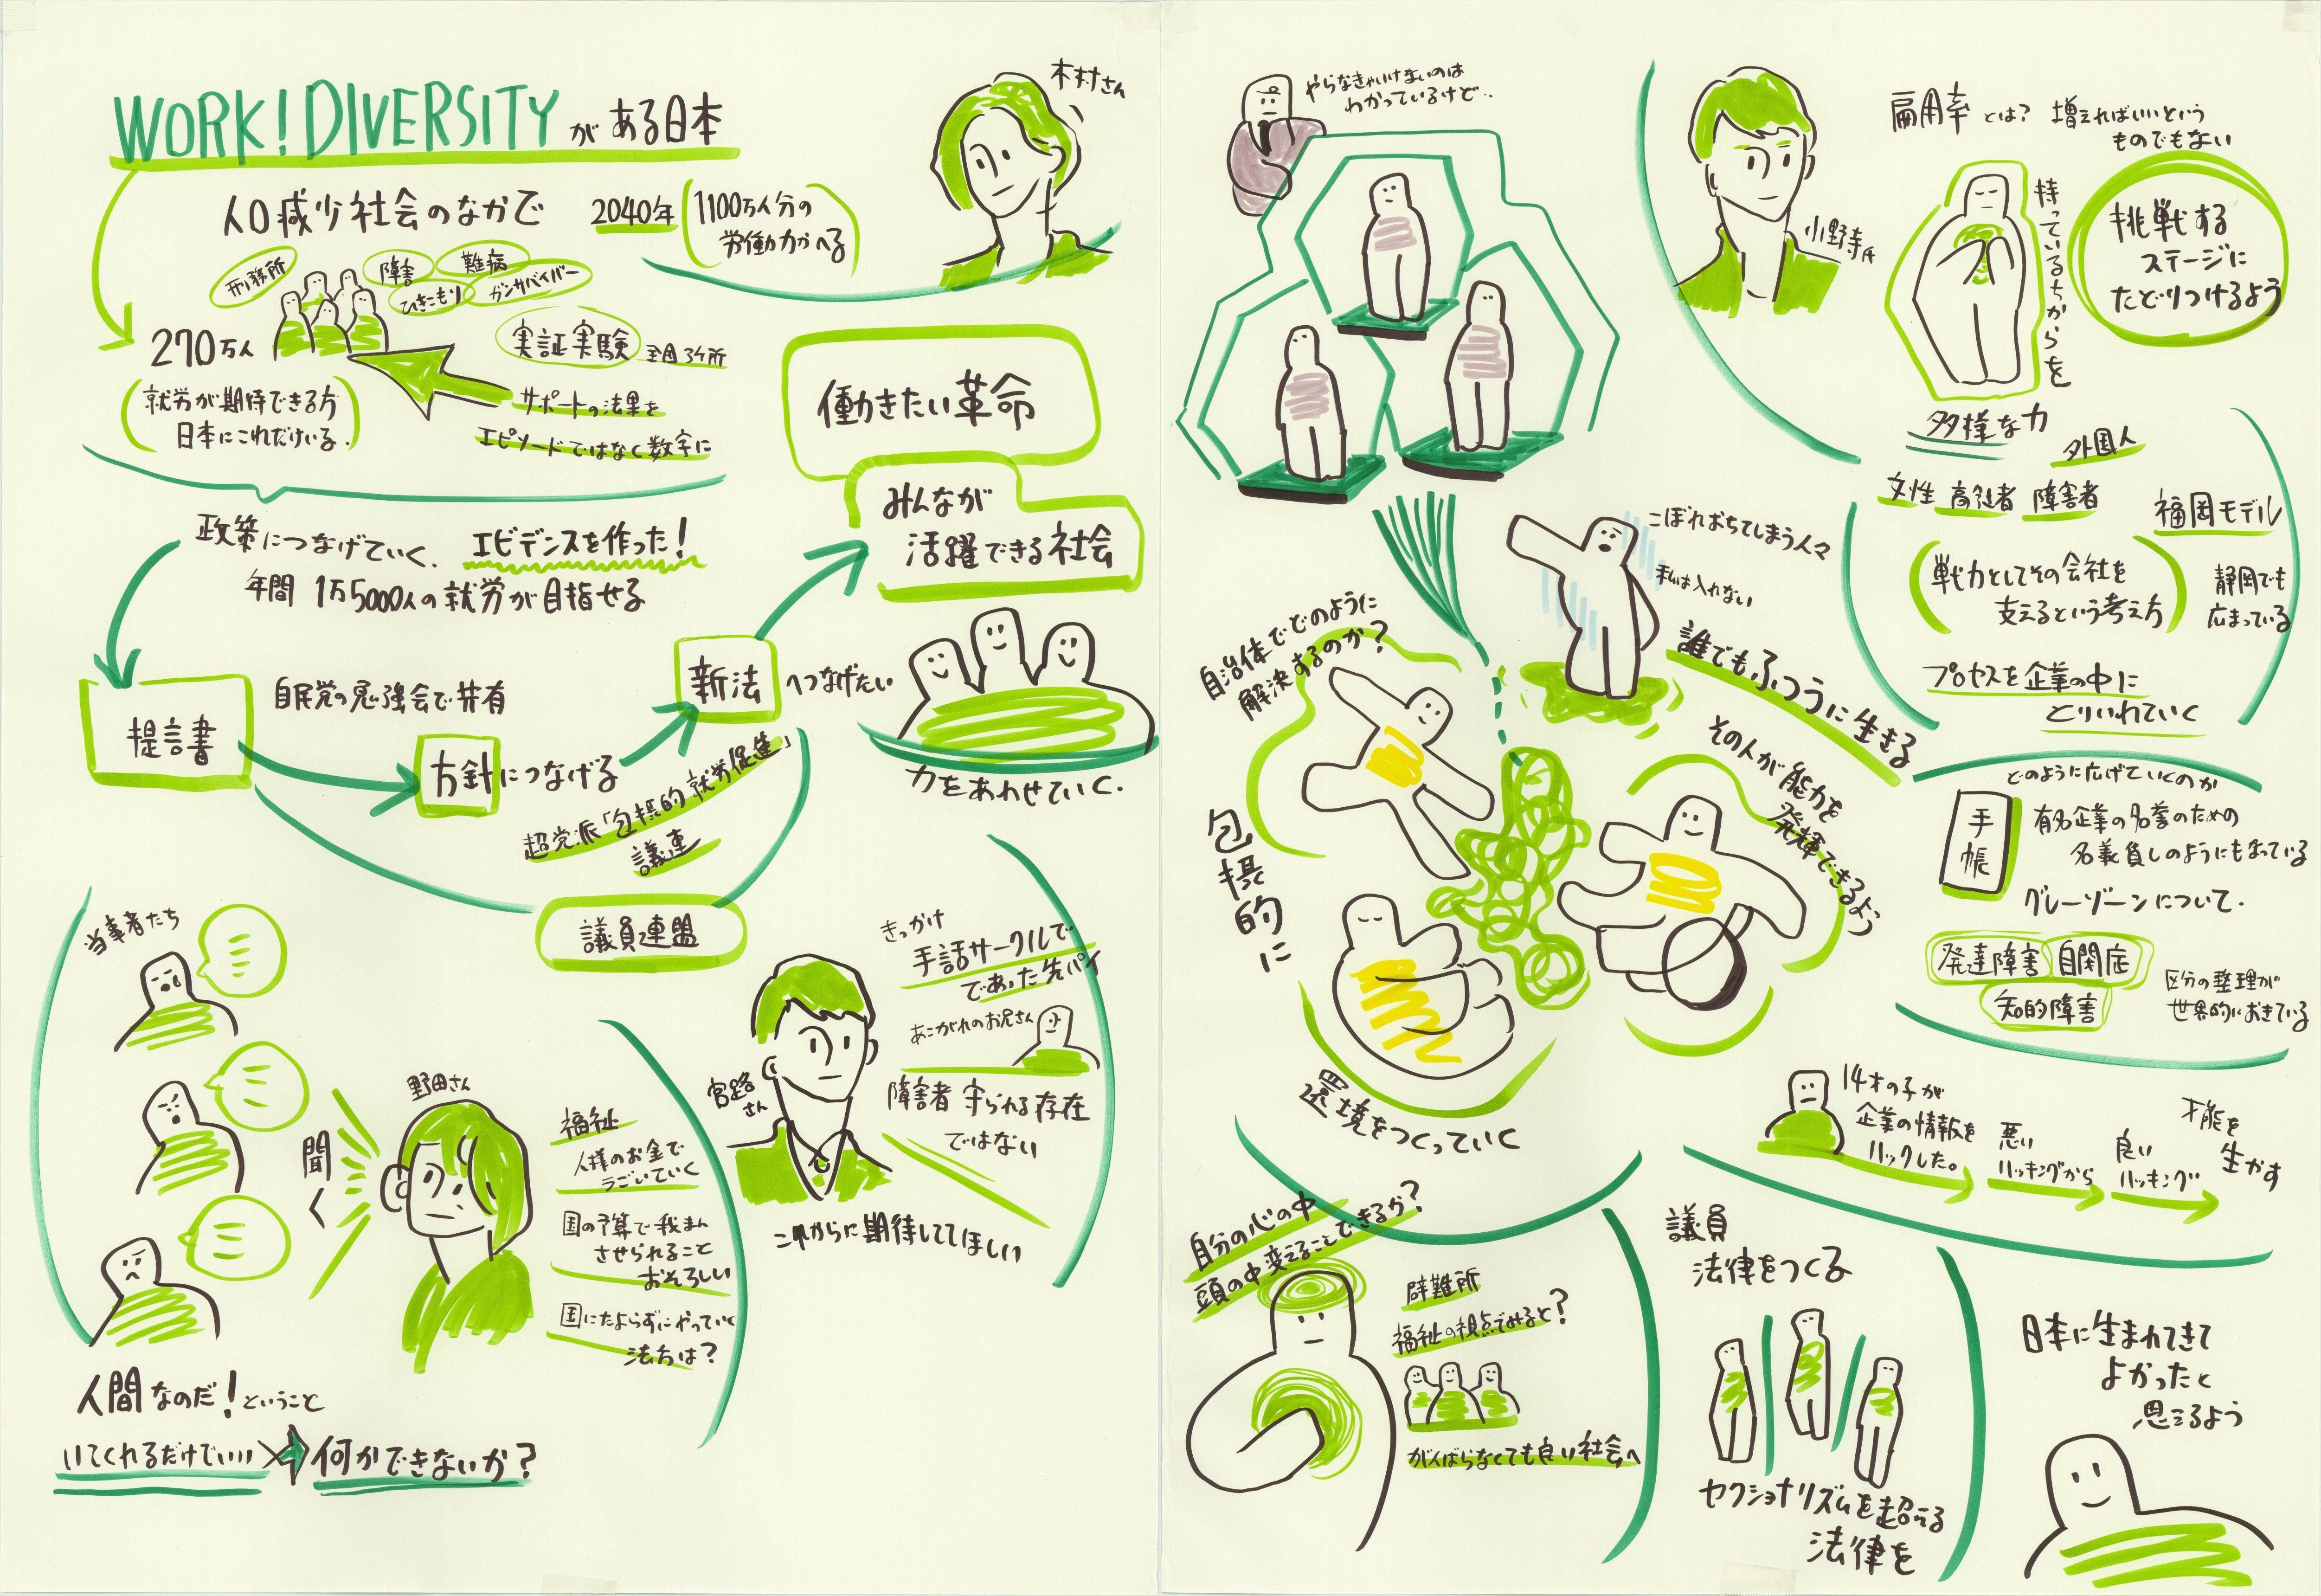 WORK! DIVERSITY がある日本
木村さん
人口減少社会のなかで
2040年
1100万人分の
労働力がへる
刑務所
障害
難病
ひきこもり
ガンサバイバー
270万人
就労が期待できる方
日本にこれだけいる.
実証実験
サポートの法果を
エピソードではなく数字に
働きたい革命
みんなが
活躍できる社会
政策につなげていく.
エビデンスを作った!
年間 1万5000人の就労が目指せる
提言書
自民党の勉強会で共有
方針につなげる
新法へつなげたい
超党派「包摂的就労促進」
議連
力をあわせていく.
議員連盟
当事者たち
聞く
野田さん
福祉
人様のお金で
うごいていく
国の予算で我まん
させられること
おそろしい
国にたよらずにやっていく
法方は?
人間なのだ!ということ
いてくれるだけでいい
何かできないか?
宮路さん
きっかけ
手話サークルで
であった先パイ
あこがれのお兄さん
障害者 守られる存在
ではない
これからに期待してほしい
やらなきゃいけないのは
わかっているけど..
小野寺氏
雇用率とは? 増えればいいという
ものでもない
持っているちからを
挑戦する
ステージに
たどりつけるよう
多様な力
外国人
女性 高令者 障害者
福岡モデル
戦力としてその会社を
支えるという考え方
静岡でも
広まっている
プロセスを企業の中に
とりいれていく
こぼれおちてしまう人々
私は入れない
誰でもふつうに生きる
自治体でどのように
解決するのか?
その人が能力を
発揮できるよう
包摂的に
環境をつくっていく
どのように広げていくのか
手帳
有名企業の名誉のための
名義貸しのようにもなっている
グレーゾーンについて.
発達障害
自閉症
知的障害
区分の整理が
世界的におきている
14才の子が
企業の情報を
ハックした。
悪い
ハッキングから
良い
ハッキング
才能を
生かす
自分の心の中
頭の中変えることできるか?
避難所
福祉の視点でみると?
がんばらなくても良い社会へ
議員
法律をつくる
セクショナリズムを超える
法律を
日本に生まれてきて
よかったと
思えるよう